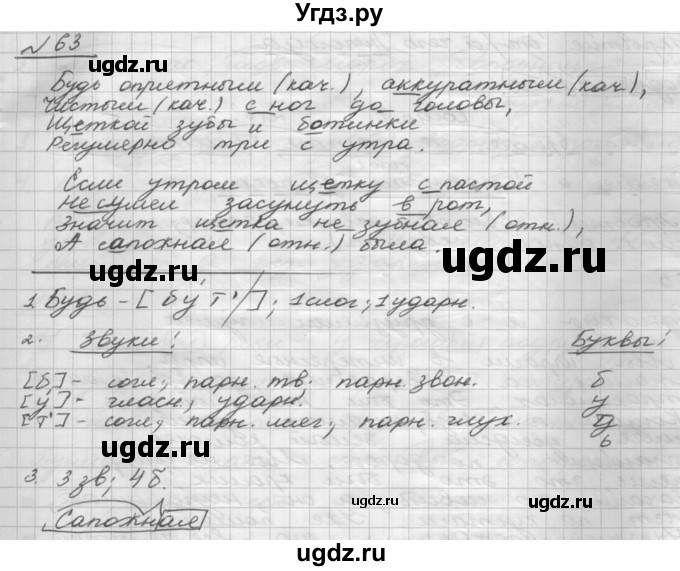 Угдз.ру
№ 63
Будь опрятным (кач.), аккуратным (кач.),
Чистым (кач.) с ног до головы,
Щёткой зубы и ботинки
Регулярно три с утра.
Если утром щётку с пастой
Не сумел засунуть в рот,
Значит щётка не зубная (отн.),
А сапожная (отн.) была.
1. Будь - [бу́т']; 1 слог; 1 ударн.
2. Звуки: Буквы:
[б] - согл, парн. тв. парн. звон. б
[у́] - гласн, ударн. у
[т'] - согл, парн. мяг, парн. глух. д
ь
3. 3 зв; 4 б.
Сапожная
ugdz.ru
ugdz.ru
ugdz.ru
ugdz.ru
ugdz.ru
ugdz.ru
ugdz.ru
ugdz.ru
ugdz.ru
ugdz.ru
ugdz.ru